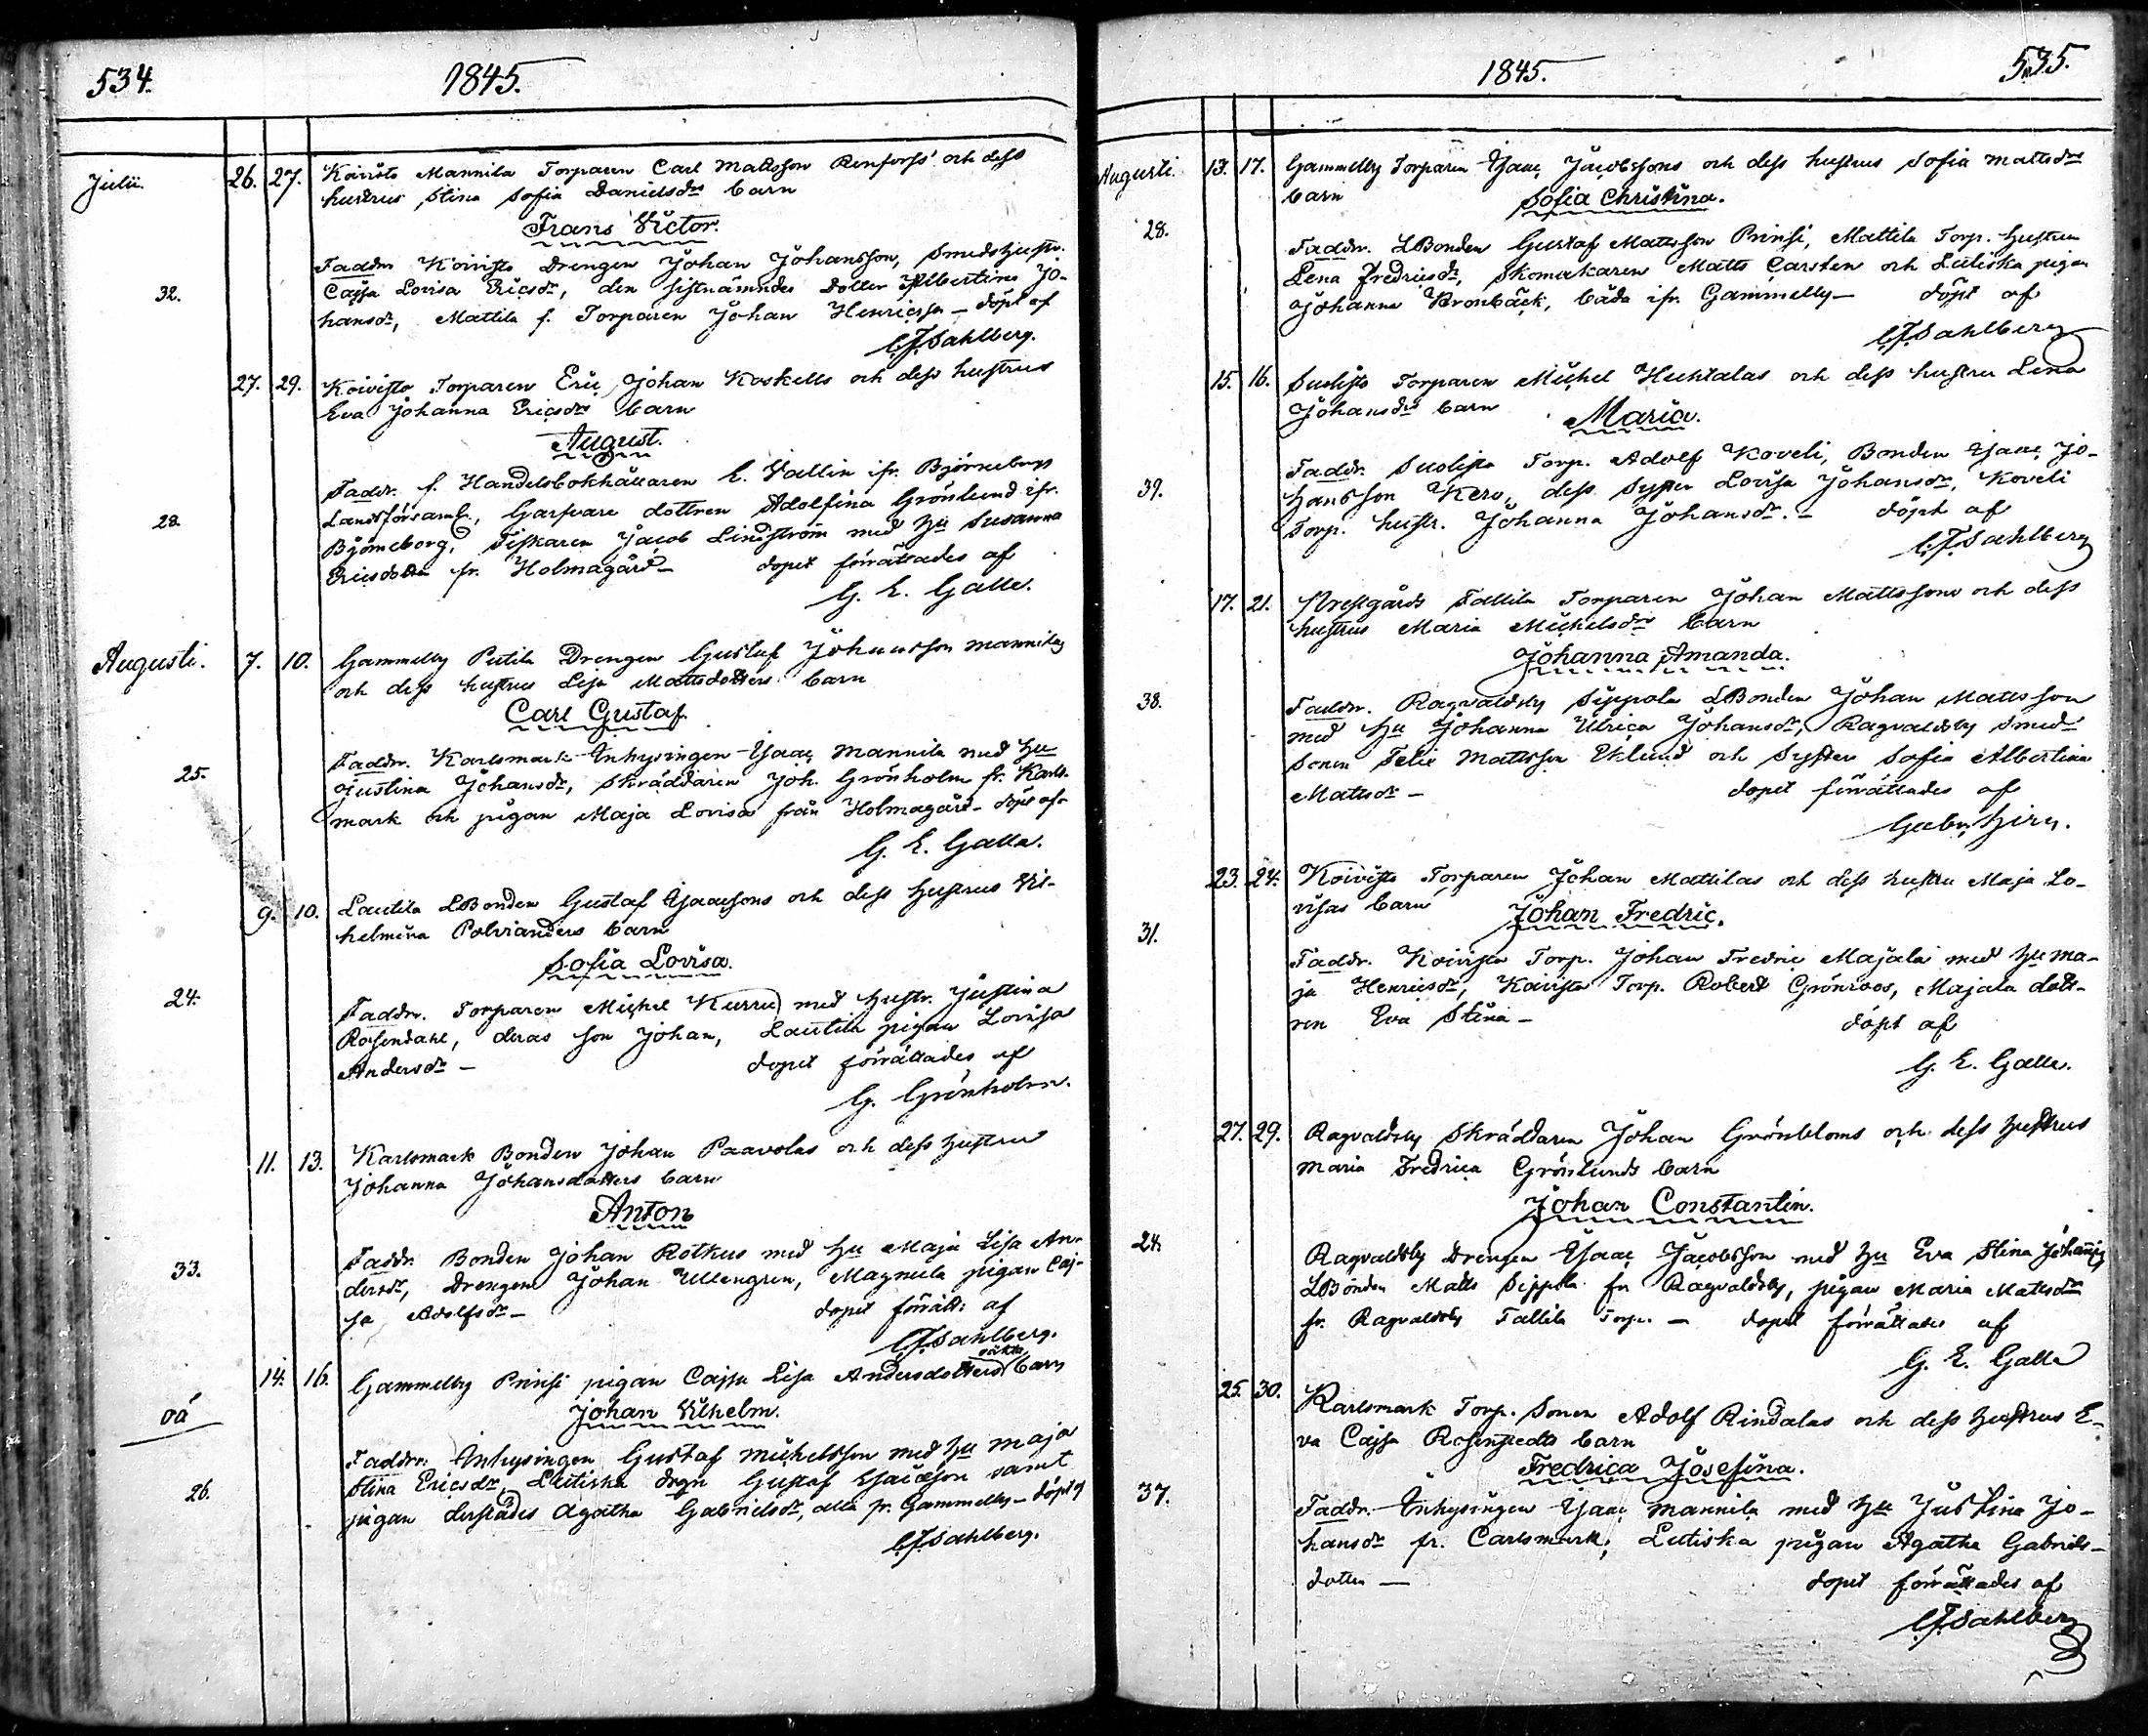 534. 1845.
Julii. 26. 27. Koivisto Mannila Torparen Carl Mattsson Renfors' och dess
hustrus Stina Sofia Danielsdrs barn
Frans Victor.
Faddr. Koivisto Drengen Johan Johansson, Smedshustr.
32. Cajsa Lovisa Ericsdr, den sistnämndes dotter Albertina Jo-
hansdr, Mattila f. Torparen Johan Henricsson – döpt af
C.J. Sahlberg.
27. 29. Koivisto Torparen Eric Johan Koskells och dess hustrus
Eva Johanna Ericsdrs barn
August.
Faddr. f. Handelsbokhållaren E. Wallin ifr. Björneborgs
28. Landsförsaml., Garfvare dottren Adolfina Grönlund ifr.
Björneborg, Fiskaren Jacob Lindström med hu Susanna
Ericsdotter fr. Holmagård – dopet förrättades af
G. E. Galle.
Augusti. 7. 10. Gammelby Putila Drengen Gustaf Johansson Mannilas
och dess hustrus Lisa Mattsdotters barn
Carl Gustaf
Faddr. Karlsmark Inhysingen Isaac Mannila med hu
25. Justina Johansdr, Skräddaren Joh. Grönholm fr. Karls-
mark och pigan Maja Lovisa från Holmagård – döpt af
G. E. Galle.
9. 10. Lautila LBonden Gustaf Isaacsons och dess hustrus Vil-
helmina Polvianders barn
Sofia Lovisa.
24. Faddr. Torparen Michel Kurru med hustr. Justina
Rosendahl, deras son Johan, Lautila pigan Lovisa
Andersdr – dopet förrättades af
G. Grönholm.
11. 13. Karlsmark Bonden Johan Paavolas och dess hustrus
Johanna Johansdotters barn
Anton
Faddr. Bonden Johan Rotkus med hu Maja Lisa An-
33. dersdr, Drengen Johan Ullengren, Magnula pigan Caj-
sa Adolfsdr – dopet förrätt: af
C.J. Sahlberg.
14. 16. Gammelby Prinsi pigan Cajsa Lisa Andersdotters oäkta barn
oä Johan Vilhelm.
Faddr. Inhysingen Gustaf Michelsson med hu Maja
26. Stina Ericsdr, Lutiska drgn Gustaf Isaacson samt
pigan derstädes Agatha Gabrielsdr, alla fr. Gammelby – döpt af
C.J. Sahlberg.
1845. 535.
Augusti 13. 17. Gammelby Torparen Isaac Jacobssons och dess hustrus Sofia Mattsdrs
barn Sofia Christina.
28. Faddr. LBonden Gustaf Mattsson Prinsi, Mattila Torp. hustrun
Lena Fredricsdr, Skomakaren Matts Carsten och Lutiska pigan
Johanna Bronbäck, båda ifr. Gammelby – döpt af
C.J. Sahlberg
15. 16. Suolisto Torparen Michel Huhtalas och dess hustru Lena
Johansdrs barn Maria.
Faddr. Suolisto Torp. Adolf Koveli, Bonden Isaac Jo-
39. hansson Kero, dess Syster Lovisa Johansdr, Koveli
Torp. hustr. Johanna Johansdr. – döpt af
C.J. Sahlberg
17. 21. Prestgårds Tallila Torparen Johan Mattssons och dess
hustrus Maria Michelsdrs barn
Johanna Amanda.
38. Faddr. Ragvaldsby Sippola LBonden Johan Mattsson
med hu Johanna Ulrica Johansdr, Ragvaldsby Smeds
sonen Felix Mattsson Eklund och Syster Sofia Albertina
Mattsdr – dopet förrättades af
23. 24. Koivisto Torparen Johan Mattilas och dess hustru Maja Lo-
visas barn Johan Fredric.
31. Faddr. Koivisto Torp. Johan Fredric Majala med hu Ma-
ja Henricsdr, Koivisto Torp. Robert Grönroos, Majala dott-
ren Eva Stina – döpt af
G. E. Galle.
27. 29. Ragvaldsby Skräddaren Johan Grönbloms och dess hustrus
Maria Fredrica Grönlunds barn
Johan Constantin.
24. Ragvaldsby Drengen Isaac Jacobsson med hu Eva Stina Johansdr
LBonden Matts Sippola fr Ragvaldsby, pigan Maria Mattsdr
fr. Ragvaldsby Tallila Torp. – dopet förrättades af
G. E. Galle
25. 30. Karlsmark Torp. Sonen Adolf Rindalas och dess hustrus E-
va Cajsa Rosenstedts barn
Fredrica Josefina.
37. Faddr. Inhysingen Isaac Mannila med hu Justina Jo-
hansdr fr. Carlsmark, Lutiska pigan Agatha Gabriels-
dotter – dopet förrättades af
C.J. Sahlberg